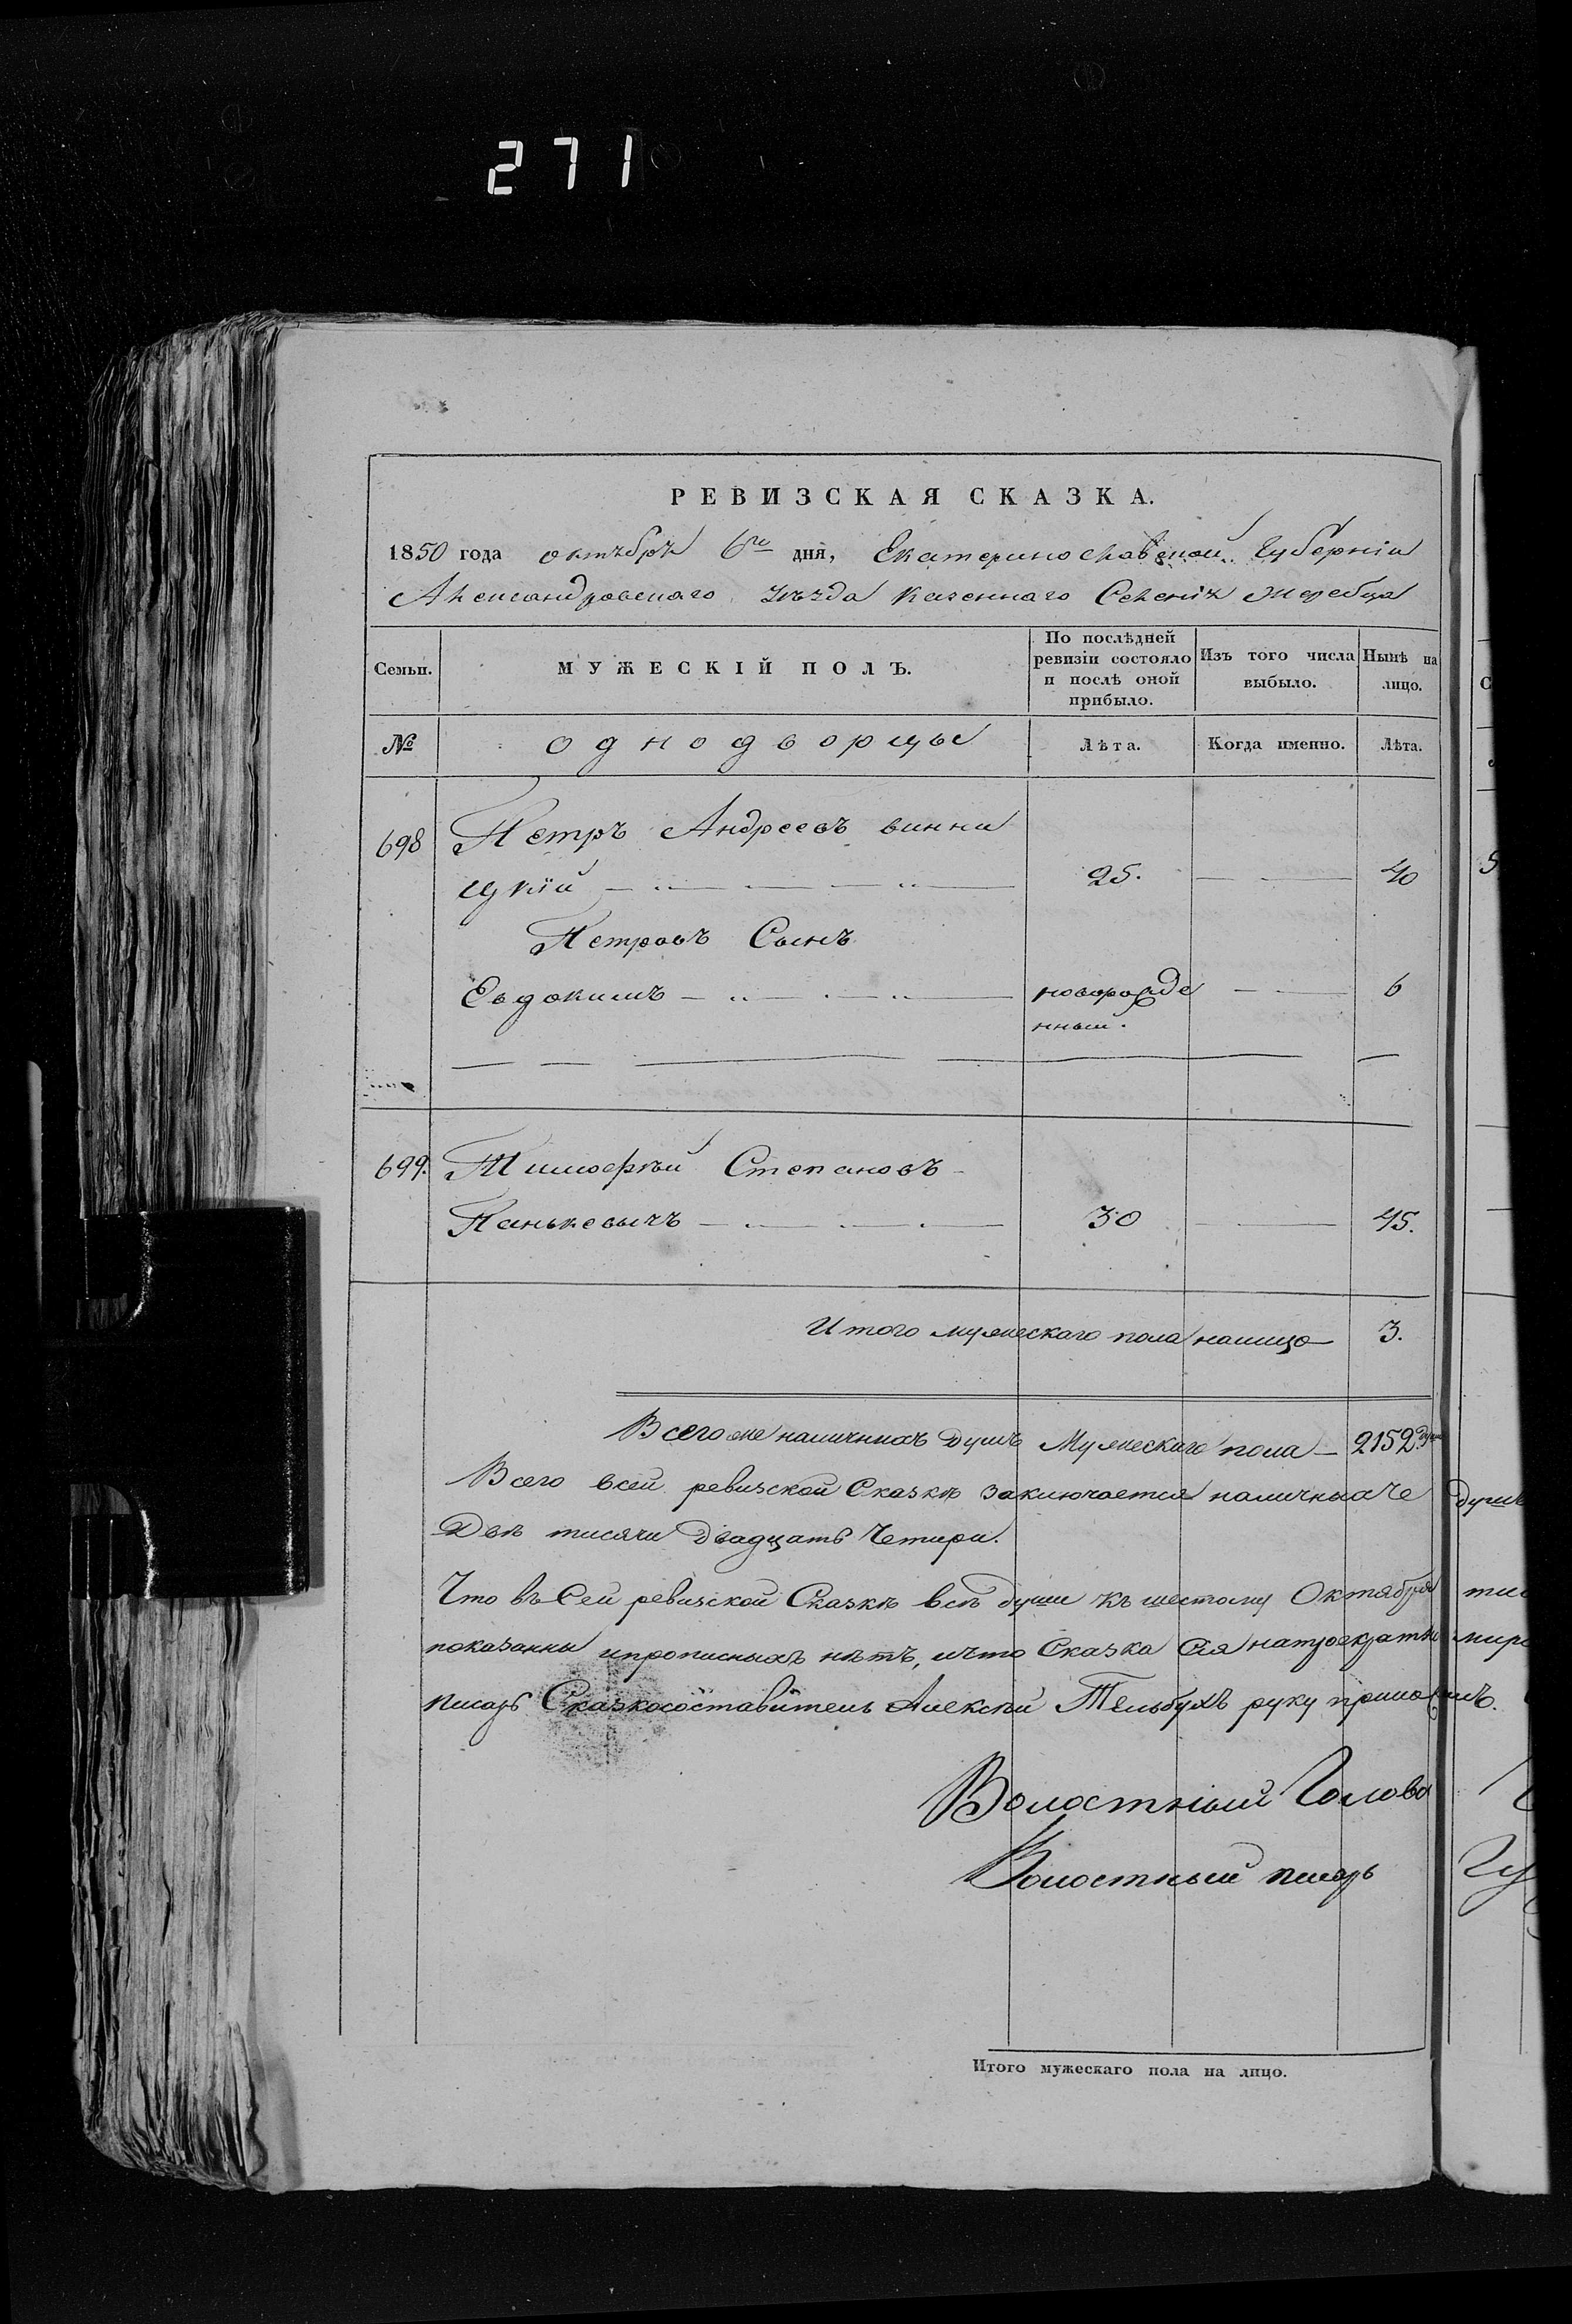 271
РЕВИЗСКАЯ СКАЗКА.
1850 года октября 6го дня, Екатеринославской Губерніи
Александровскаго уѣзда казеннаго Селенія Жеребца
Семьи.
МУЖЕСКІЙ ПОЛЪ.
По послѣдней ревизіи состояло и послѣ оной прибыло.
Изъ того числа выбыло.
Нынѣ на лицо.
№ однодворцы Лѣта. Когда именно. Лѣта.
698 Петръ Андреевъ винни
цкій 25. 40
Петровъ Сынъ
Евдокимъ новорожде 6
нный.
699. Тимофѣй Степановъ
Панькевычъ 30 45.
Итого мужескаго пола налицо 3.
Всего же наличныхъ душъ Мужескаго пола 2152 душ
Всего всей ревизской Сказкѣ заключается наличныхъ душъ
Двѣ тисячи двадцать Четири.
Что въ Сей ревизской Сказкѣ всѣ души къ шестому Октября
показанны ипрописныхъ нѣтъ, ичто Сказка Сія
писарь Сказкосоставитель Алексѣй Тельбухъ руку приложилъ.
Волостный Голова
Волостный писарь
Итого мужескаго пола на лицо.